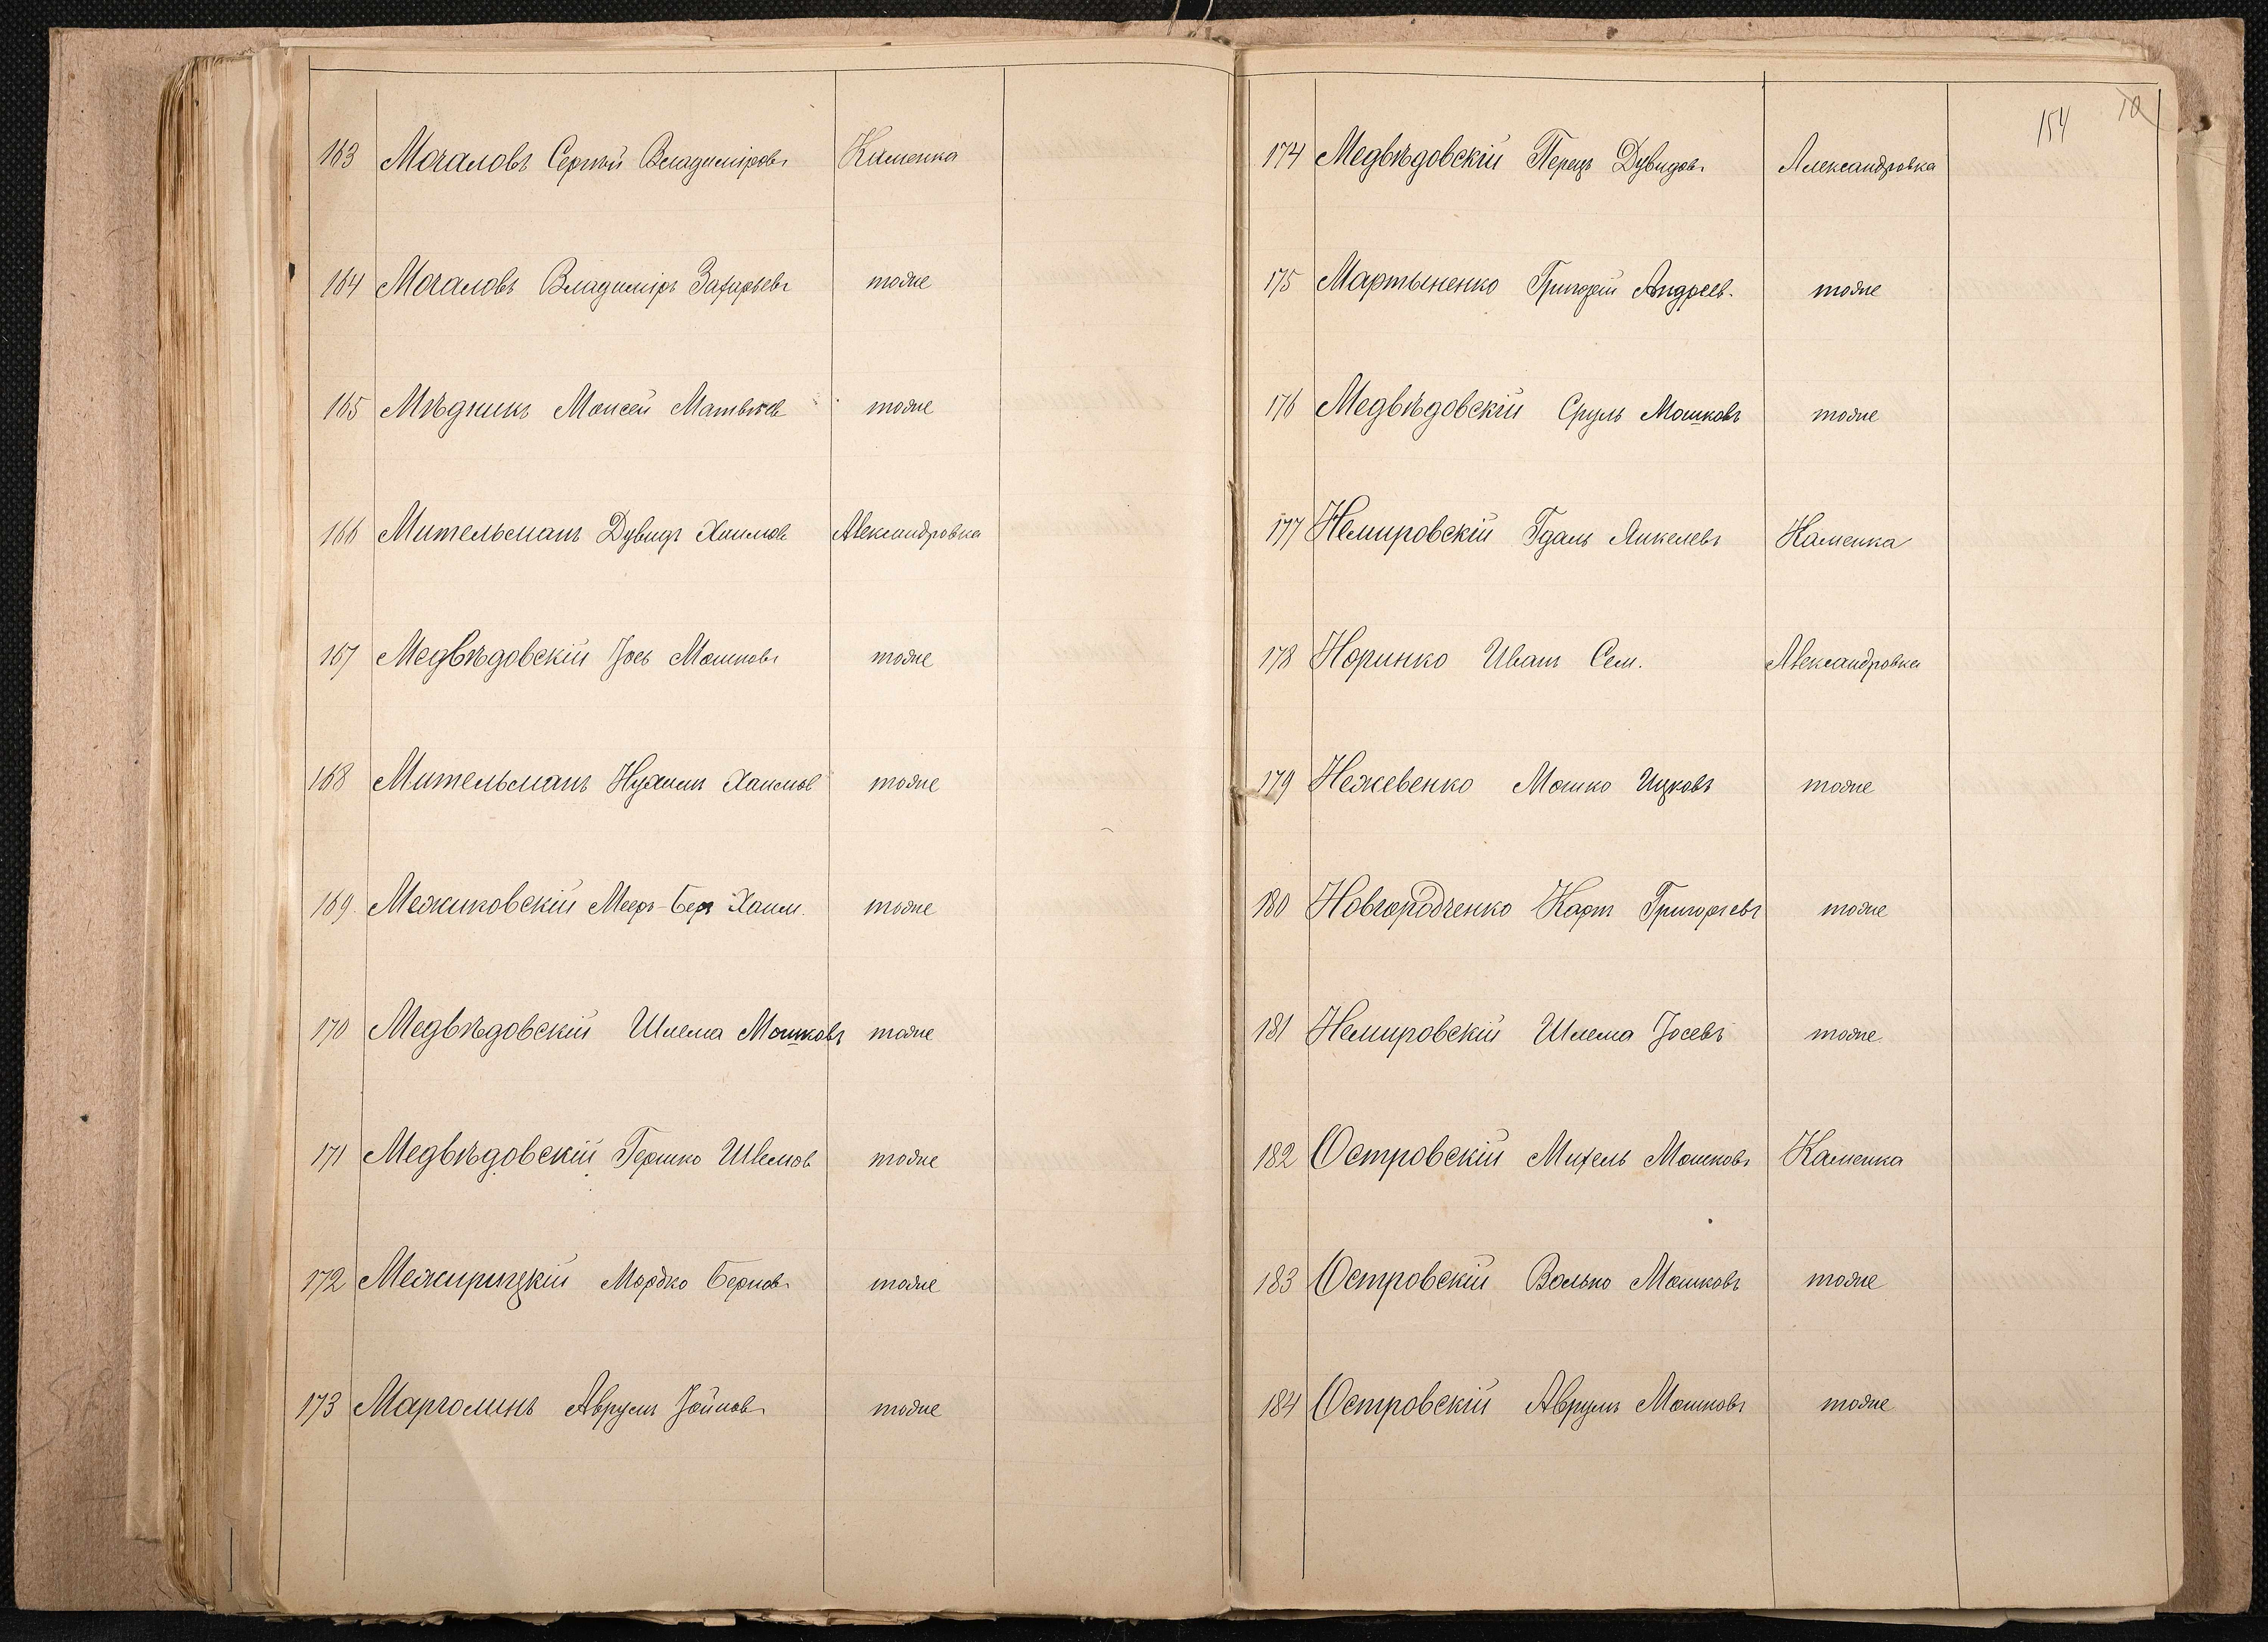 163 Мочаловъ Сергѣй Владиміровъ Каменка
164 Мочаловъ Владиміръ Захарьевъ тоже
165 Мѣдникъ Моисей Матвѣев тоже
166 Мительманъ Дувидъ Хаимов Александровка
167 Медвѣдовскій Іось Мошковъ тоже
168 Мительманъ Нухимъ Хаимов тоже
169 Межиковскій Мееръ-Беръ Хаим. тоже
170 Медвѣдовскій Шлема Мошковъ тоже
171 Медвѣдовскій Гершко Шлемов тоже
172 Межирицкій Мордко Берков тоже
173 Марголинъ Аврумъ Іойнов тоже
154 10
174 Медвѣдовскій Перецъ Дувидовъ Александровка
175 Мартыненко Григорій Андреев. тоже
176 Медвѣдовскій Сруль Мошковъ тоже
177 Немировскій Гдаль Янкелевъ Каменка
178 Норинко Иванъ Сем. Александровка
179 Нежевенко Мошко Ицковъ тоже
180 Новгородченко Карпъ Григорьевъ тоже
181 Немировскій Шлема Іосевъ тоже
182 Островскій Михель Мошковъ Каменка
183 Островскій Волько Мошковъ тоже
184 Островскій Аврумъ Мошковъ тоже